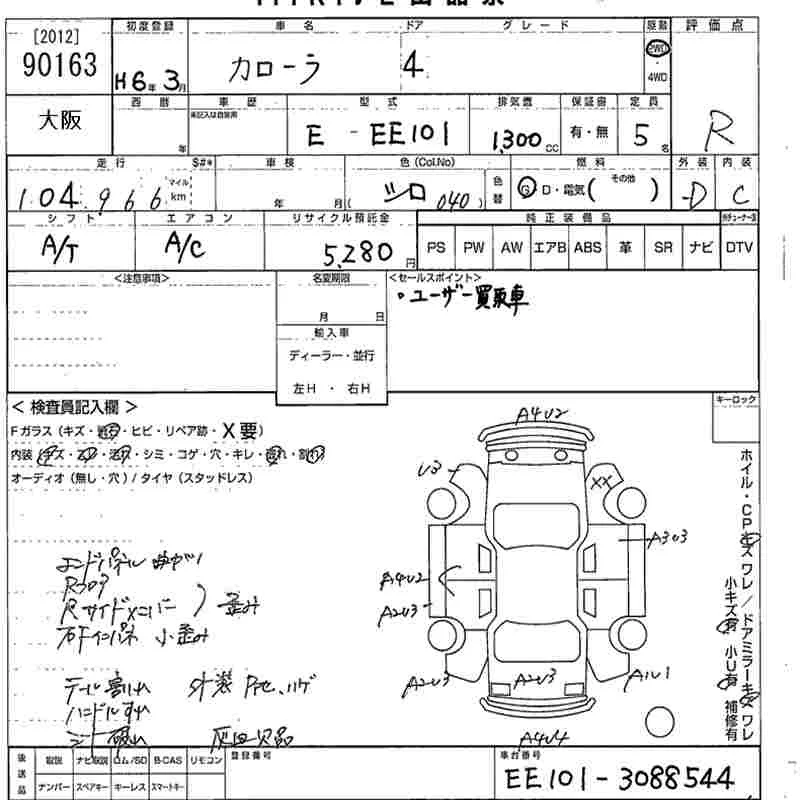 [2012]
90163
初度登録
車名
ドア
グレード
駆動
評価点
H6年3月
カローラ
4
2WD
4WD
大阪
西暦
年
車歴
未記入は自家用
型式
E - EE101
排気量
1,300 CC
保証書
有・無
定員
5名
R
走行
$#*
車検
色(Col.No)
燃料
外装
内装
104,966
マイル
km
年 月(
シロ 040)
色替
G・D・電気( その他 )
-D
C
シフト
エアコン
リサイクル預託金
純正装備品
A/T
A/C
5,280円
PS PW AW エアB ABS 革 SR ナビ DTV
<注意事項>
名変期限
月 日
輸入車
ディーラー・並行
左H ・ 右H
<セールスポイント>
・ユーザー買取車
キーロック
< 検査員記入欄 >
Fガラス(キズ・飛石・ヒビ・リペア跡・X要)
内装(キズ・スレ・汚れ・シミ・コゲ・穴・キレ・割れ)
オーディオ(無し・穴)/タイヤ(スタッドレス)
A4U2
U3
XX
A3U3
A4U2
A2U3
A2U3
A2U3
A1U1
A4U4
エンドパネル 曲がり
Rフロア
Rサイドメンバー 歪み
右Fインパネ 小歪み
テール割れ 外装 ハゲ
ハンドルすれ
シート破れ 灰皿欠品
ホイル・CPキズ ワレ/ドアミラーキズ ワレ
小キズ有 小U有 補修有
後送品
取説 ナビ取説 ロム/SD B-CAS リモコン
ナンバー スペアキー キーレス スマートキー
登録番号
車台番号
EE101-3088544